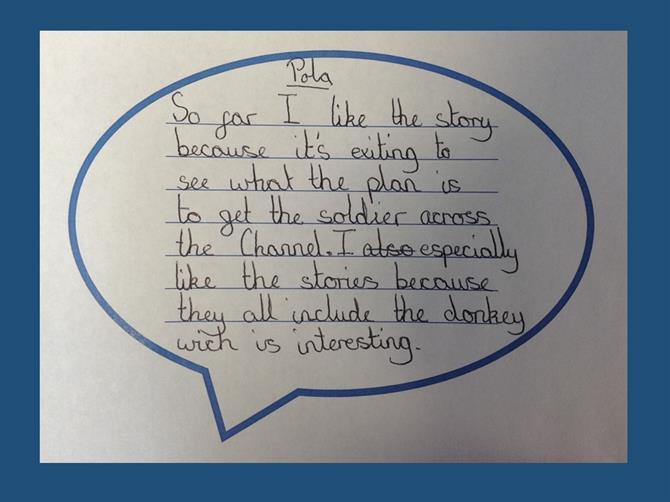 Pola
So far I like the story
because it's exiting to
see what the plan is
to get the soldier across
the Channel. I also especially
like the stories because
they all include the donkey
wich is interesting.